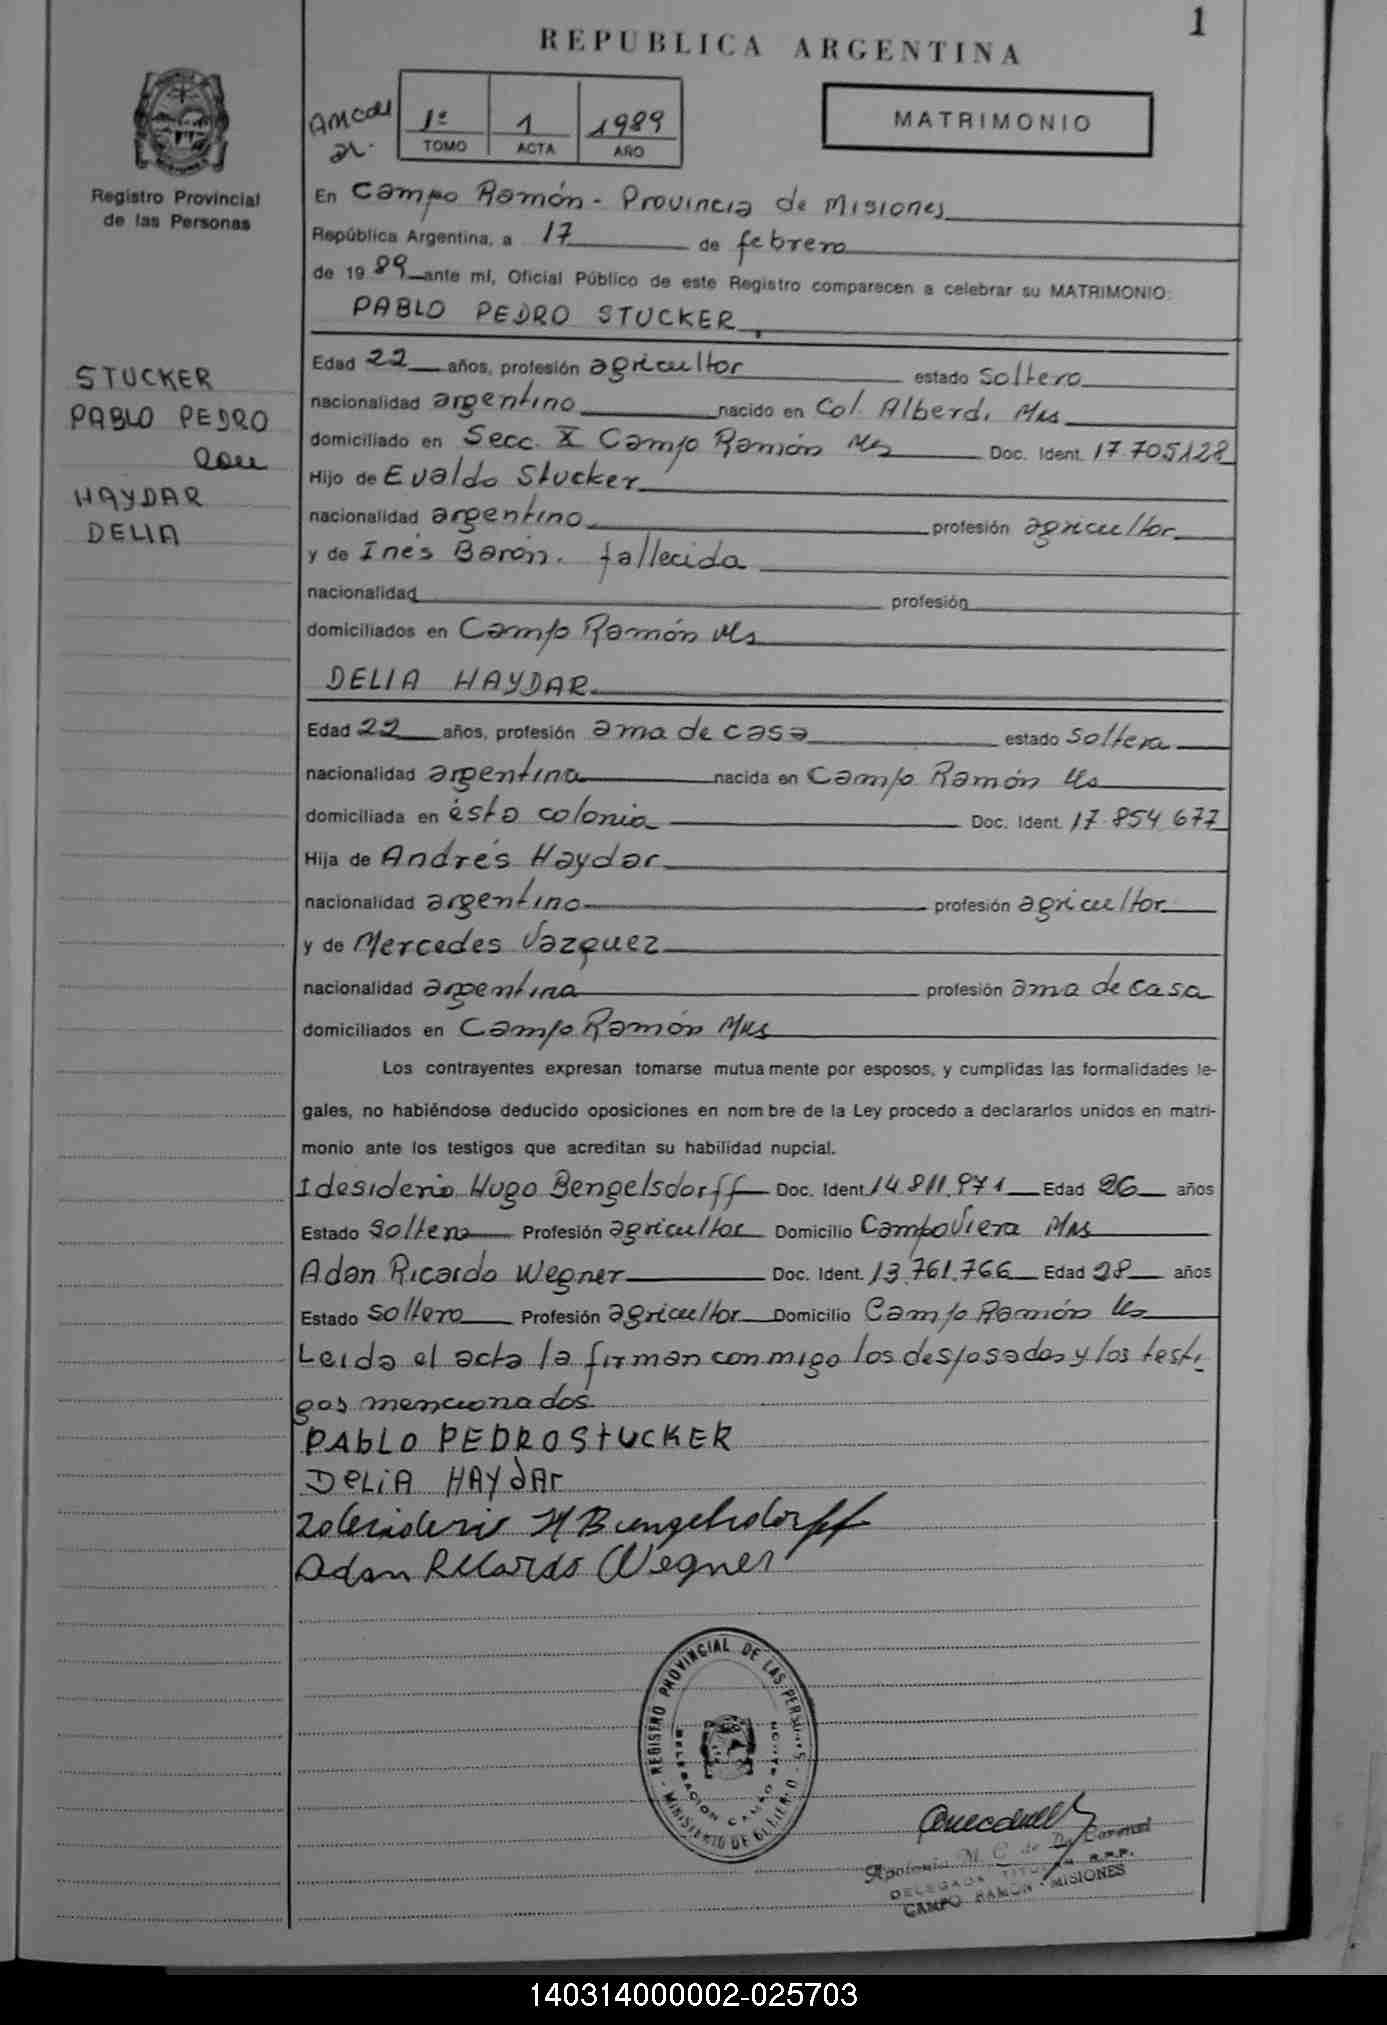 1
REPUBLICA ARGENTINA
1º 1 1989
TOMO ACTA AÑO
MATRIMONIO
Registro Provincial
de las Personas
En Campo Ramón - Provincia de Misiones
República Argentina, a 17 de febrero
de 1989 ante mí, Oficial Público de este Registro comparecen a celebrar su MATRIMONIO:
PABLO PEDRO STUCKER
STUCKER
PABLO PEDRO
con
HAYDAR
DELIA
Edad 22 años, profesión agricultor estado soltero
nacionalidad argentino nacido en Col. Alberdi Mns
domiciliado en Secc. X Campo Ramón Ms Doc. Ident. 17.705128
Hijo de Evaldo Stucker
nacionalidad argentino profesión agricultor
y de Inés Barón. fallecida
nacionalidad profesión
domiciliados en Campo Ramón Ms
DELIA HAYDAR
Edad 22 años, profesión ama de casa estado soltera
nacionalidad argentina nacida en Campo Ramón Ms
domiciliada en ésta colonia Doc. Ident. 17.854.677
Hija de Andrés Haydar
nacionalidad argentino profesión agricultor
y de Mercedes Vazquez
nacionalidad argentina profesión ama de casa
domiciliados en Campo Ramón Mns
Los contrayentes expresan tomarse mutuamente por esposos, y cumplidas las formalidades le-
gales, no habiéndose deducido oposiciones en nombre de la Ley procedo a declararlos unidos en matri-
monio ante los testigos que acreditan su habilidad nupcial.
Idesiderio Hugo Bengelsdorff Doc. Ident. 14.811.971 Edad 26 años
Estado soltero Profesión agricultor Domicilio Campo Viera Mns
Adan Ricardo Wegner Doc. Ident. 13.761.766 Edad 28 años
Estado soltero Profesión agricultor Domicilio Campo Ramón Ms
Leida el acta la firman conmigo los desposados y los testi
gos mencionados
PAbLO PEDRO StUCKER
DeLiA HAYdAr
Idesiderio H Bengelsdorff
Adan Ricardo Wegner
REGISTRO PROVINCIAL DE LAS PERSONAS
DELEGACION CAMPO RAMON
MINISTERIO DE GOBIERNO
Apolonia M. C. de
DELEGADA TITULAR R.P.P.
CAMPO RAMON - MISIONES
140314000002-025703